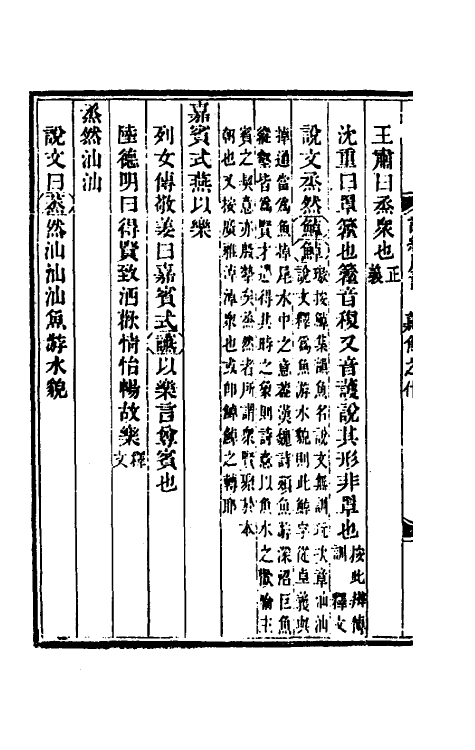 王肅曰烝衆也 正義
沈重曰罩籱也籱音穫又音護說其形非罩也 按此辯傳
訓 釋文
說文烝然䱜䱜 璩按䱜集韻魚名說文無訓玩次章汕汕
說文釋爲魚游水貌則此䱜字從卓義與
掉通當爲魚掉尾水中之意 漢魏詩 魚游深沼巨魚
縱壑皆爲賢才遭得其時之象則詩意以魚水之歡喻主
賓之契意亦殷勤矣烝然者所謂衆賢 於本
朝也又按廣雅淖淖衆也或即䱜䱜之轉耶
嘉賓式燕以樂
列女傳敬姜曰嘉賓式讌以樂言尊賓也
陸德明曰得賢致酒歡情怡暢故樂 釋文
烝然汕汕
說文曰蒸然汕汕汕魚游水貌